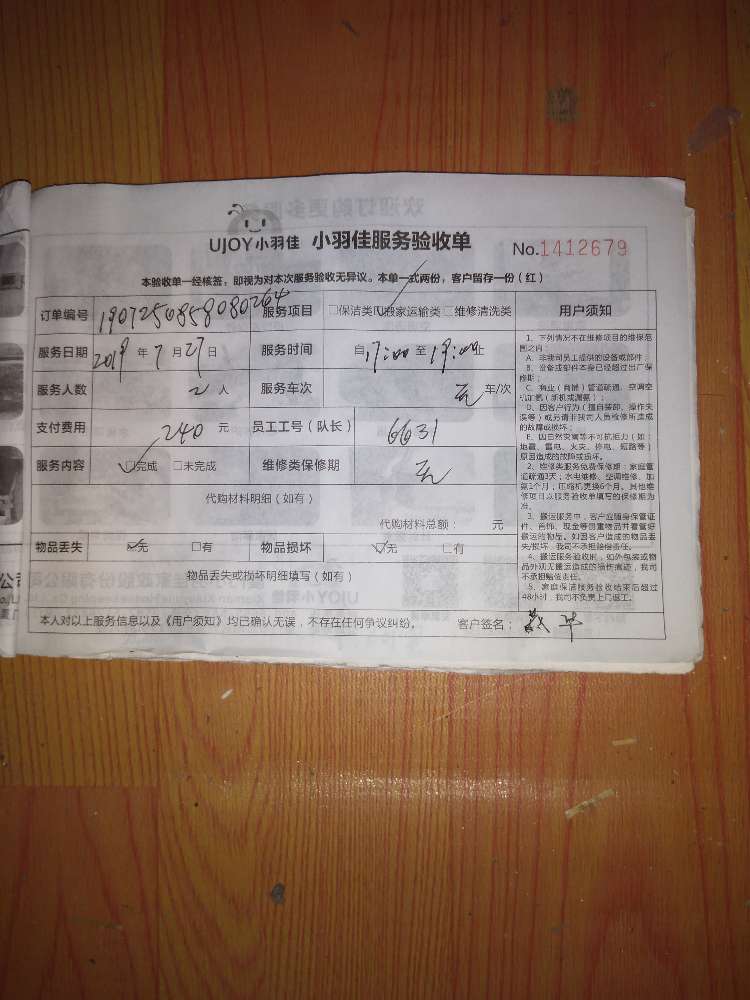 UJOY小羽佳 小羽佳服务验收单 No.1412679
本验收单一经核签，即视为对本次服务验收无异议。本单一式两份，客户留存一份（红）
订单编号 1907250858080264 服务项目 □保洁类□搬家运输类□维修清洗类
服务日期 2019 年 7 月 27 日 服务时间 自 17:00 至 19:00 止
服务人数 2 人 服务车次 无 车/次
支付费用 240 元 员工工号（队长） 6631
服务内容 ☑完成 □未完成 维修类保修期 无
代购材料明细（如有）
代购材料总额： 元
物品丢失 ☑无 □有 物品损坏 ☑无 □有
物品丢失或损坏明细填写（如有）
本人对以上服务信息以及《用户须知》均已确认无误，不存在任何争议纠纷。 客户签名：
用户须知
1、下列情况不在维修项目的维保范
围之内：
A、非我司员工提供的设备或部件；
B、设备或部件本身已经超过出厂保
修期；
C、商业（商铺）管道疏通、空调空
机加氨（新机或漏氨）；
D、因客户行为（擅自装卸、操作失
误等）或另请非我司人员检修所造成
的故障或损坏；
E、因自然灾害等不可抗拒力（如：
地震、雷电、火灾、停电、短路等）
原因造成的故障或损坏。
2、维修类服务免费保修期：家庭管
道疏通3天；水电维修、空调维修、加
氨1个月；压缩机更换6个月。其他维
修项目以服务验收单填写的保修期为
准。
3、搬运服务中，客户应随身保管证
件、首饰、现金等贵重物品并看管好
搬运的物品。如因客户造成的物品丢
失/损坏，我司不承担赔偿责任。
4、搬运服务验收时，如外包装或物
品外观无搬运造成的损伤痕迹，我司
不承担赔偿责任。
5、家庭保洁服务验收结束后超过
48小时，我司不负责上门返工。